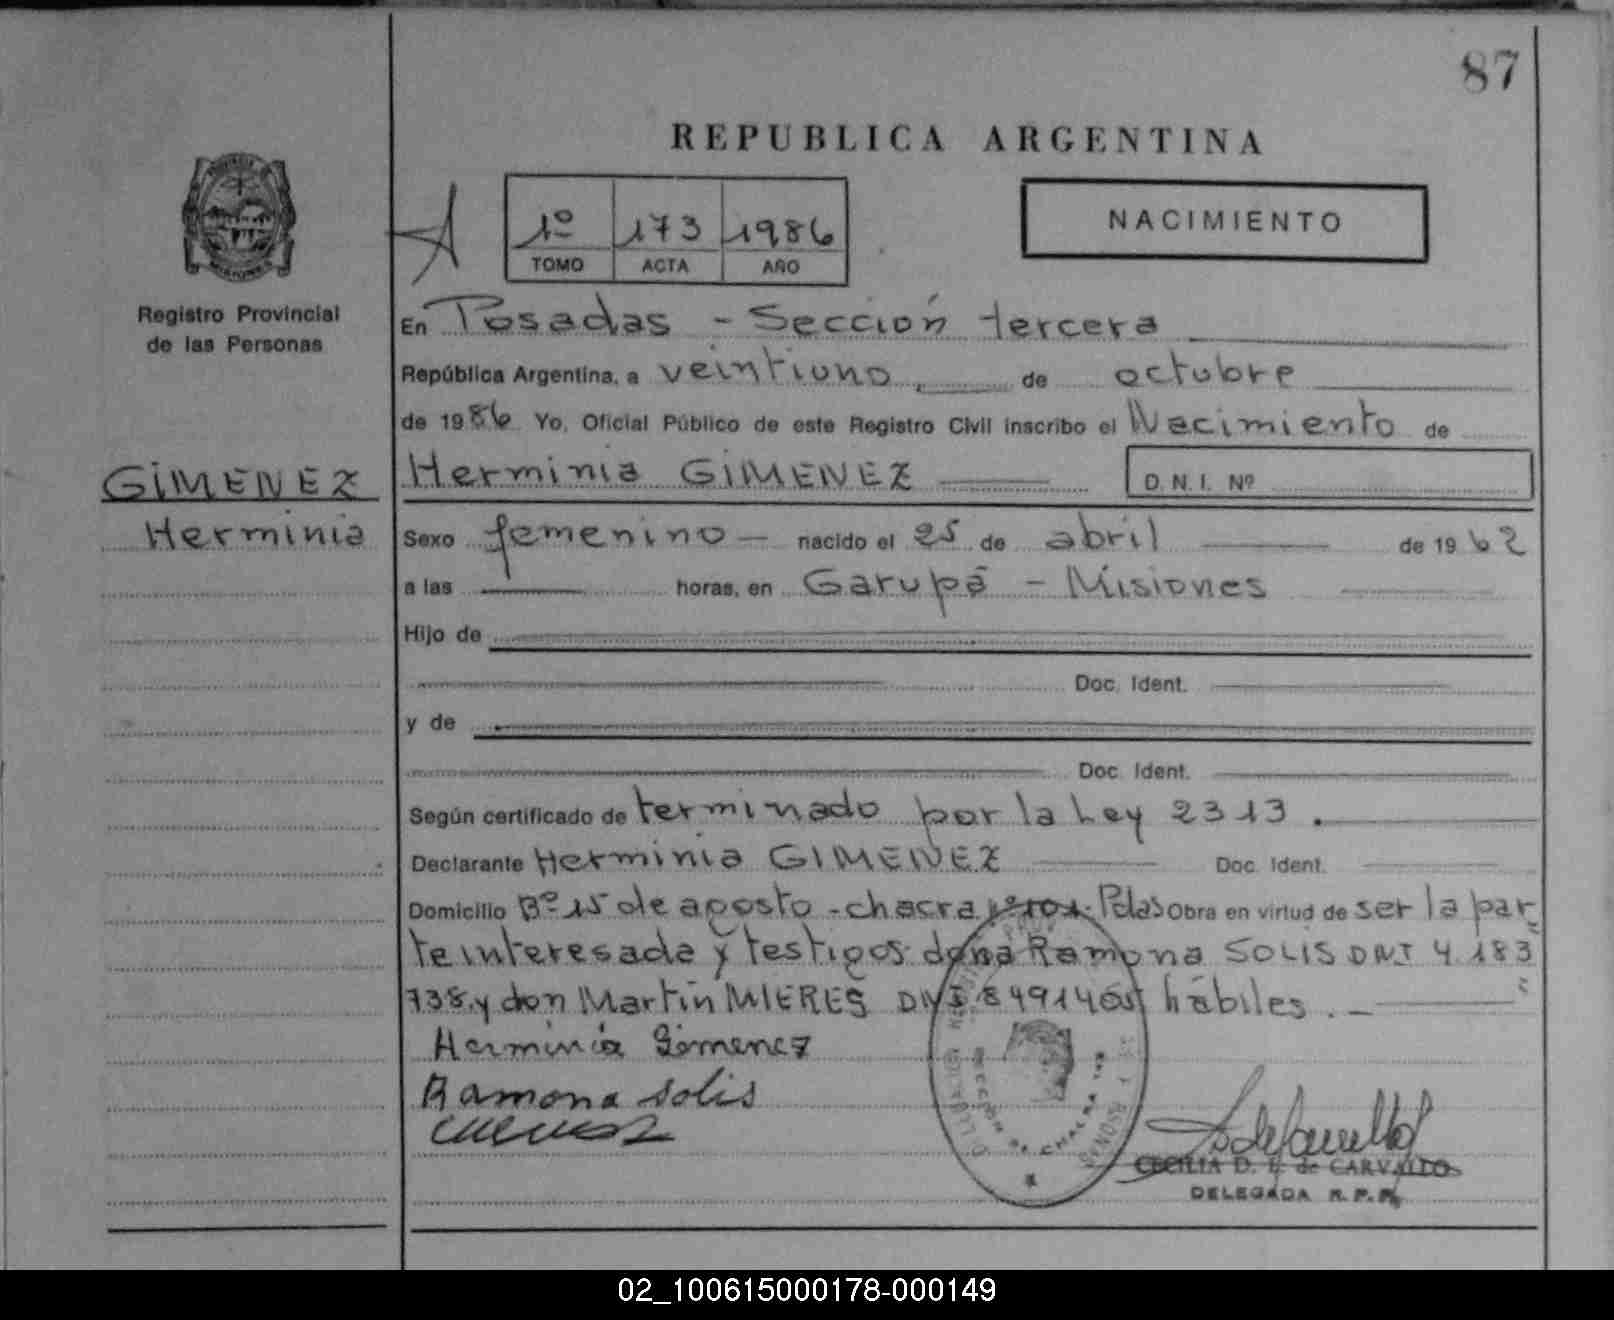 87
REPUBLICA ARGENTINA
1º 173 1986
TOMO ACTA AÑO
NACIMIENTO
Registro Provincial
de las Personas
GIMENEZ
Herminia
En Posadas - Sección tercera
República Argentina, a veintiuno de octubre
de 1986 Yo, Oficial Público de este Registro Civil inscribo el Nacimiento de
Herminia GIMENEZ D.N.I. Nº
Sexo femenino nacido el 25 de abril de 1962
a las horas, en Garupá - Misiones
Hijo de
Doc. Ident.
y de
Doc. Ident.
Según certificado de terminado por la Ley 2313.
Declarante Herminia GIMENEZ Doc. Ident.
Domicilio Bº 15 de agosto - chacra Pdas Obra en virtud de ser la par
te interesada y testigos: doña Ramona SOLIS DNI 4.183
738 y don Martín MIERES DNI hábiles.
Herminia Gimenez
Ramona Solis
CECILIA D. de CARVALLO
DELEGADA R.P.P.
02_100615000178-000149